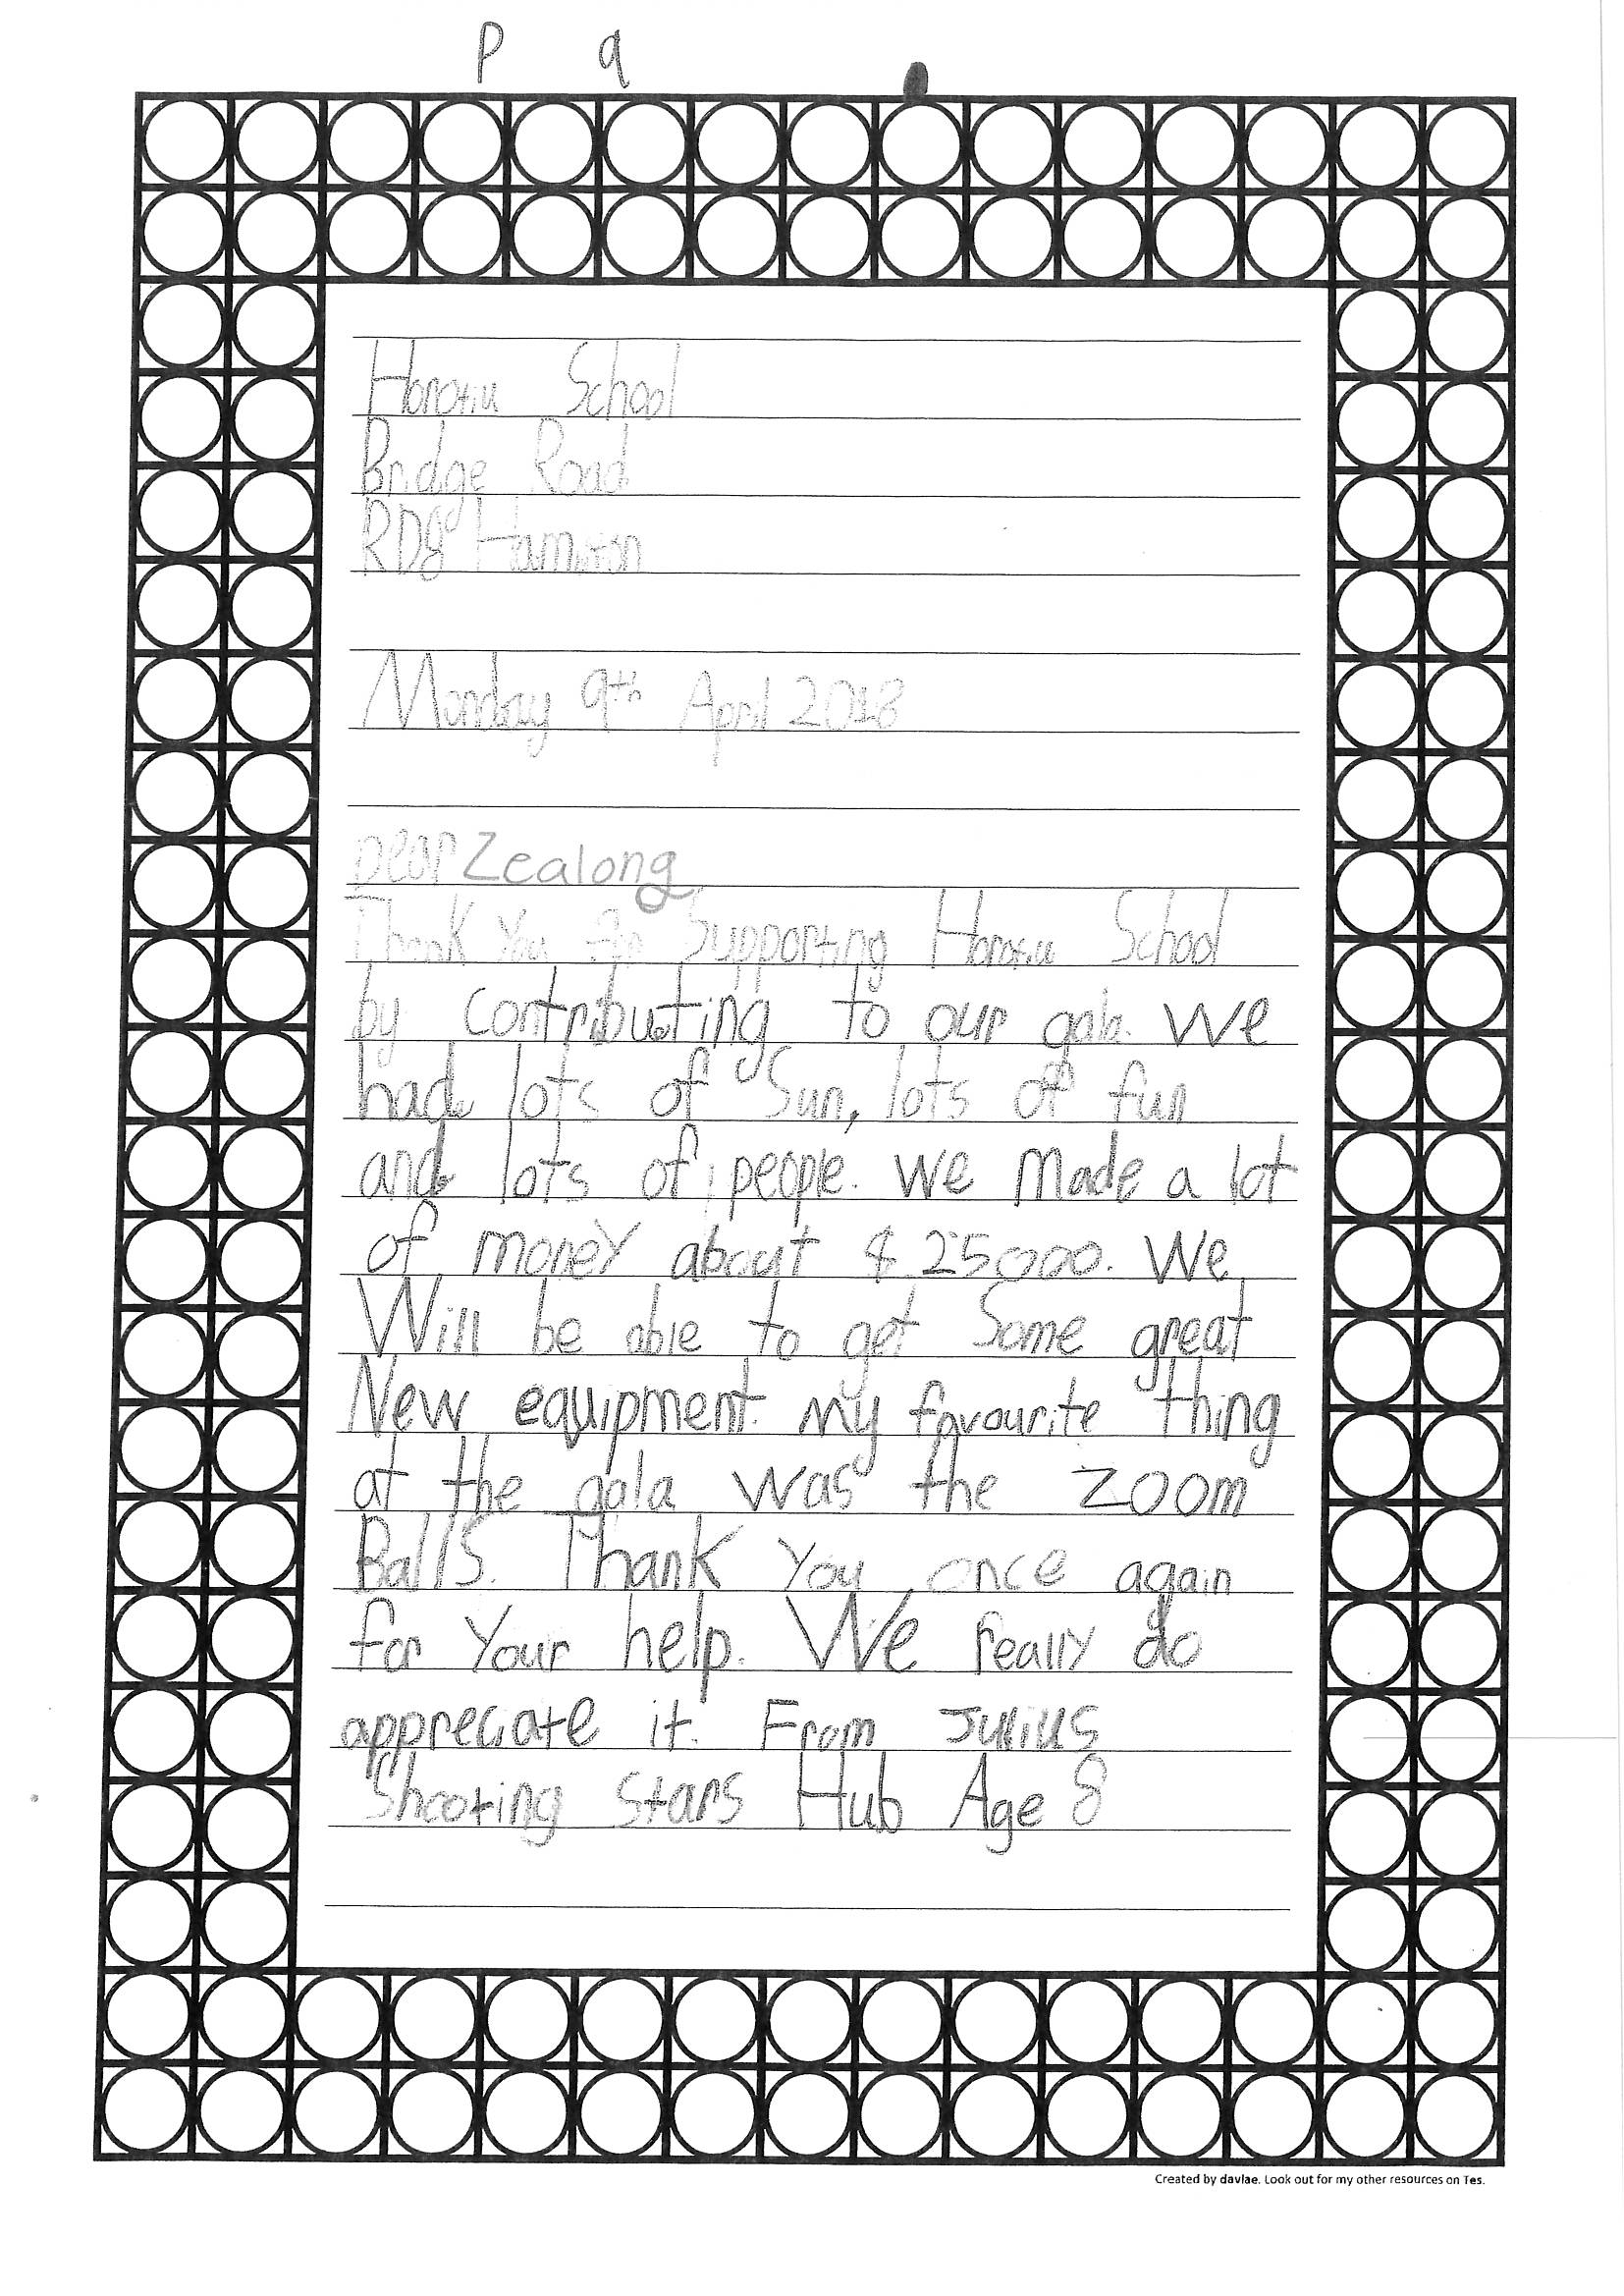 p q
Horotiu School
Bridge Road
RD8 Hamilton
Monday 9th April 2018
Dear Zealong
Thank You for Supporting Horotiu School
by contributing to our gala. We
had lots of Sun, lots of fun
and lots of people. We made a lot
of money about $25000. We
Will be able to get Some great
New equipment. My favourite thing
at the gala was the zoom
Balls. Thank You once again
for Your help. We really do
appreciate it. From Julius
Shooting Stars Hub Age 8
Created by davlae. Look out for my other resources on Tes.